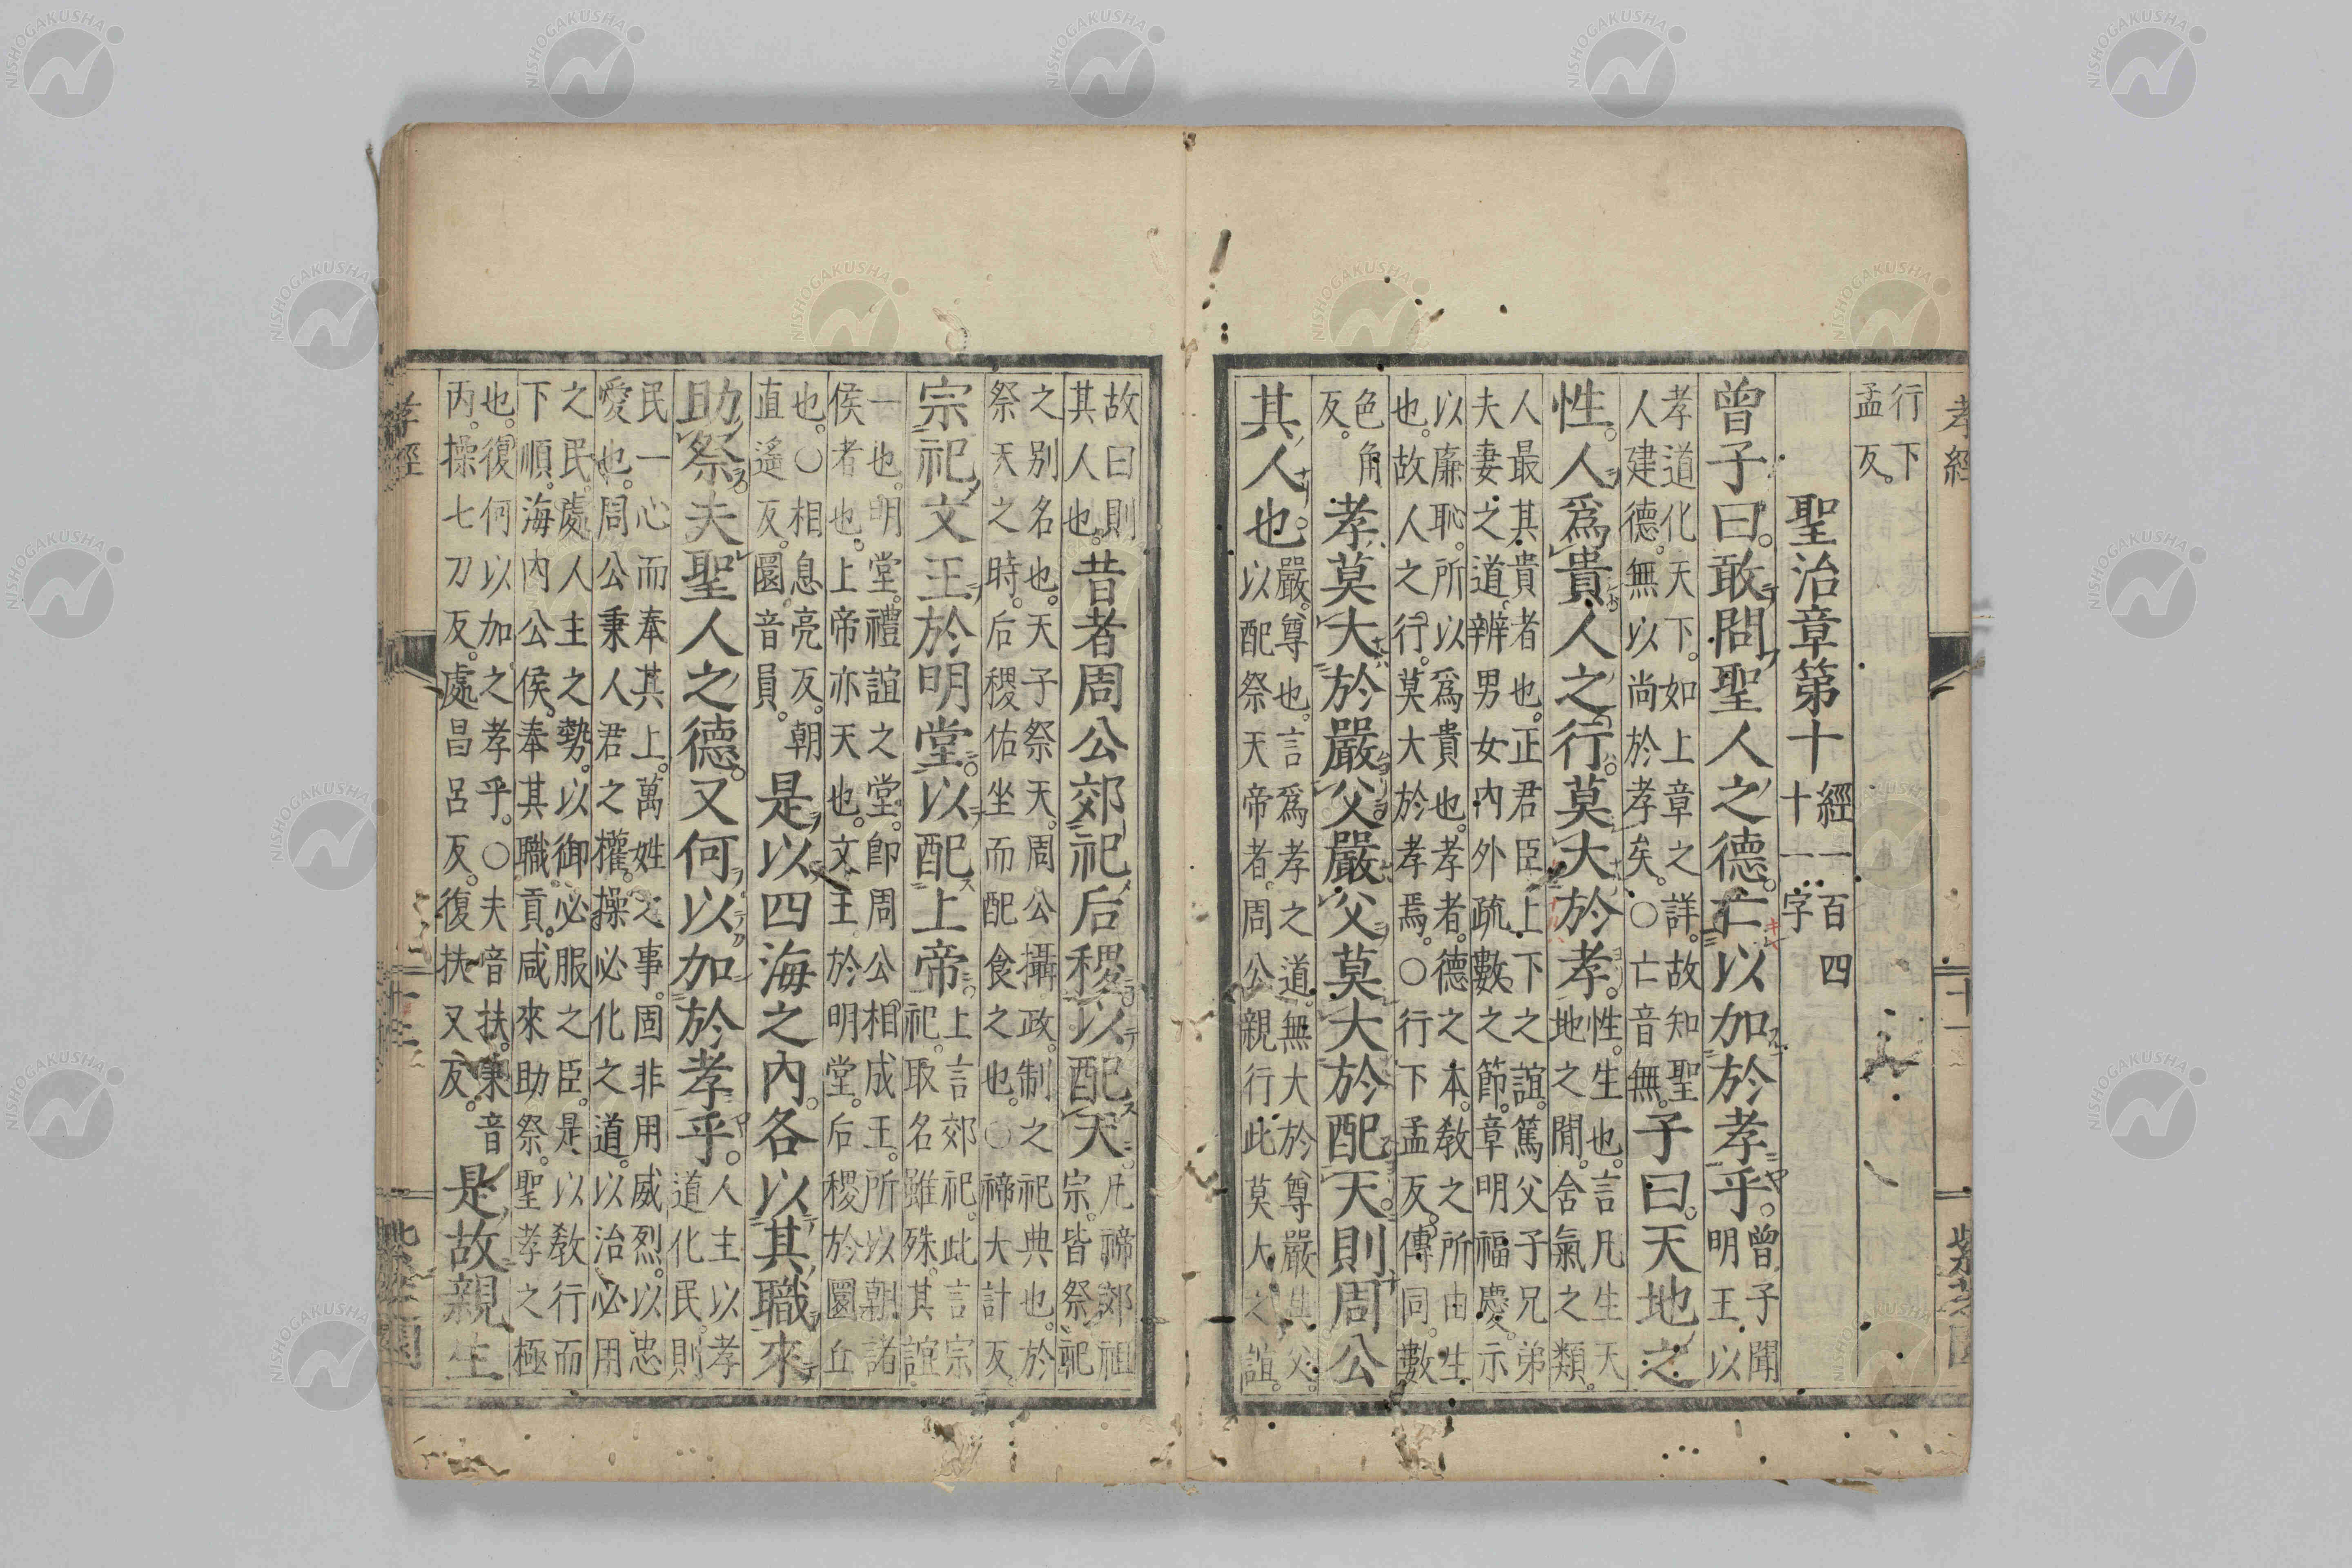 孝經 十一 紫芝園
行下孟反。
聖治章第十 經一百四十一字
曾子曰。敢問聖人之德。亡以加於孝乎。曾子聞明王以
孝道化天下。如上章之詳。故知聖人建德。無以尚於孝矣。○亡音無。子曰。天地之
性。人爲貴。人之行。莫大於孝。性。生也。言凡生天地之閒。含氣之類。
人最其貴者也。正君臣上下之誼。篤父子兄弟夫妻之道。辨男女內外疏數之節。章明福慶。示
以廉恥。所以爲貴也。孝者。德之本。敎之所由生也。故人之行。莫大於孝焉。○行下孟反。傳同。數
色角反。孝莫大於嚴父。嚴父莫大於配天。則周公
其人也。嚴。尊也。言爲孝之道。無大於尊嚴其父。以配祭天帝者。周公親行此莫大之誼。
故曰則其人也。昔者周公郊祀后稷以配天。凡禘郊祖宗。皆祭祀
之別名也。天子祭天。周公攝政。制之祀典也。於祭天之時。后稷佑坐而配食之也。○禘大計反。
宗祀文王於明堂。以配上帝。上言郊祀。此言宗祀。取名雖殊。其誼
一也。明堂。禮誼之堂。即周公相成王。所以朝諸侯者也。上帝亦天也。文王於明堂。后稷於圜丘
也。○相息亮反。朝直遙反。圜音員。是以四海之內。各以其職來
助祭。夫聖人之德。又何以加於孝乎。人主以孝道化民。則
民一心而奉其上。萬姓之事。固非用威烈。以忠愛也。周公秉人君之權。操必化之道。以治必用
之民。處人主之勢。以御必服之臣。是以敎行而下順。海內公侯。奉其職貢。咸來助祭。聖孝之極
也。復何以加之孝乎。○夫音扶。秉音丙。操七刀反。處昌呂反。復扶又反。是故親生
孝經 十二 紫芝園
NISHOGAKUSHA